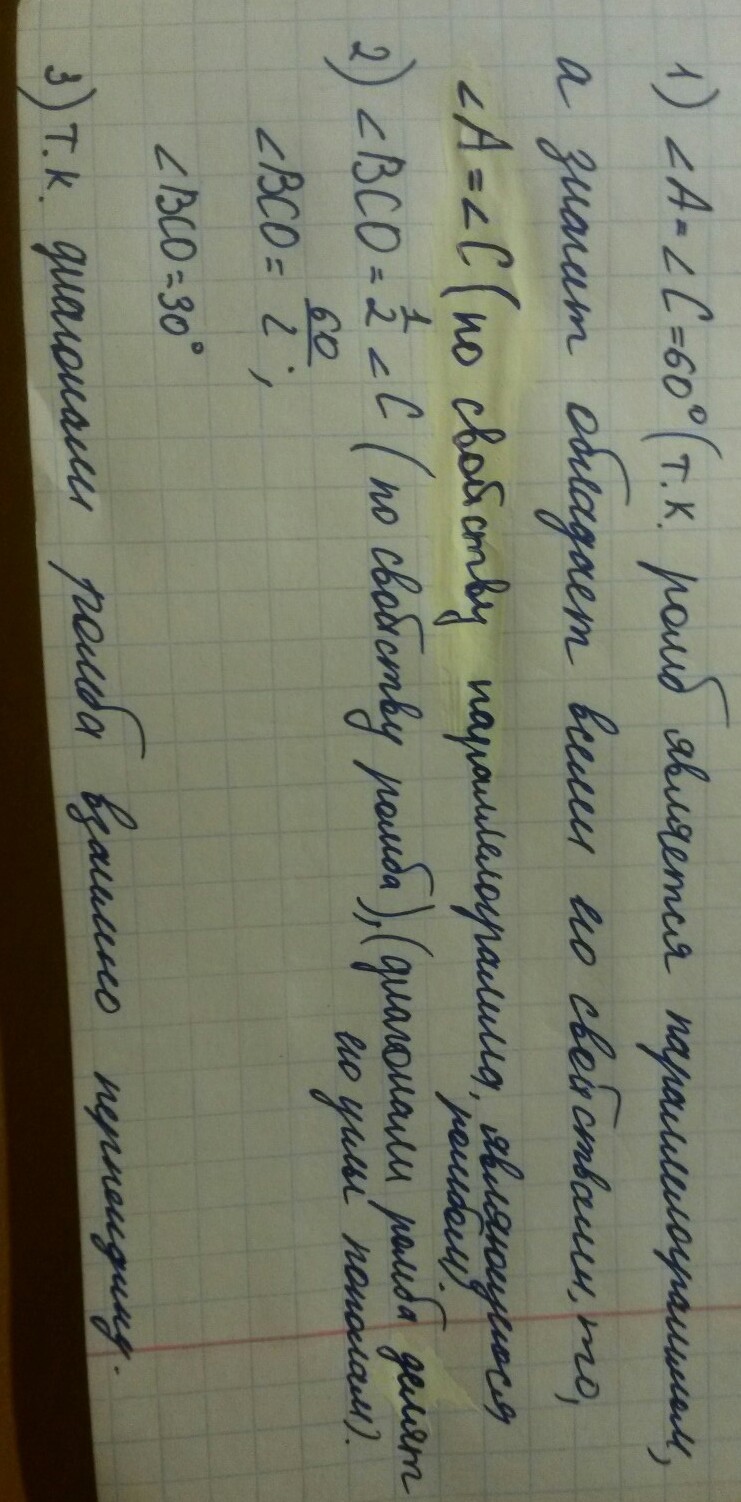 1) ∠A=∠C=60° (т.к. ромб является параллелограммом,
а значит обладает всеми его свойствами, то,
∠A=∠C (по свойству параллелограмма, являющегося
ромбом).
2) ∠BCO = 1/2 ∠C (по свойству ромба), (диагонали ромба делят
его углы пополам).
∠BCO = 60/2;
∠BCO=30°
3) т.к. диагонали ромба взаимно перпендику.